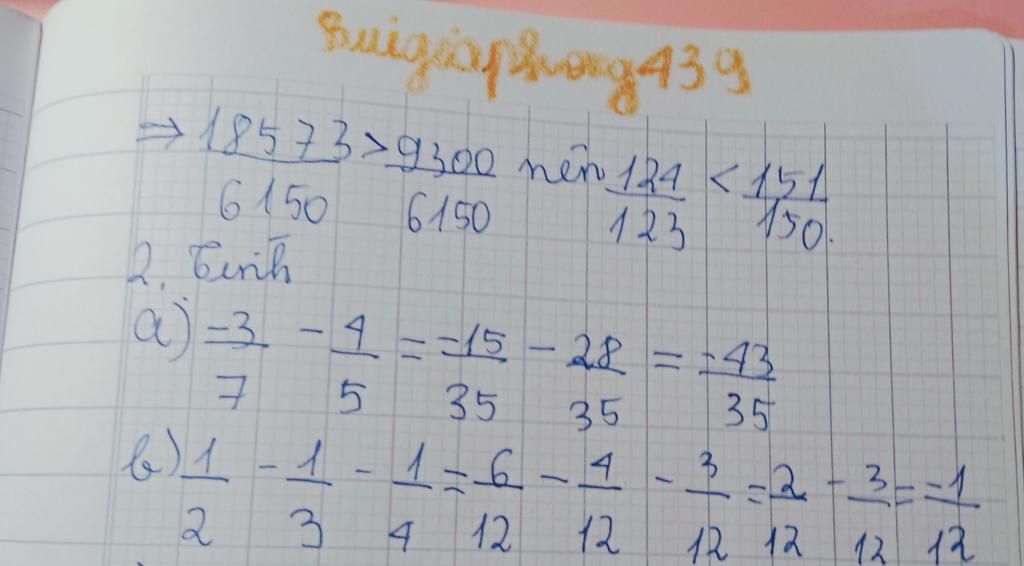 Buigiaphong439
=> 18573/6150 > 9300/6150 nên 124/123 < 151/150.
2. Tính
a) -3/7 - 4/5 = -15/35 - 28/35 = -43/35
b) 1/2 - 1/3 - 1/4 = 6/12 - 4/12 - 3/12 = 2/12 - 3/12 = -1/12